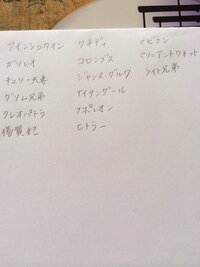 アインシュタイン
ガリレオ
キュリー夫妻
グリム兄弟
クレオパトラ
楊貴妃
ケネディ
コロンブス
ジャンヌダルク
ナイチンゲール
ナポレオン
ヒトラー
マゼラン
マリーアントワネット
ライト兄弟